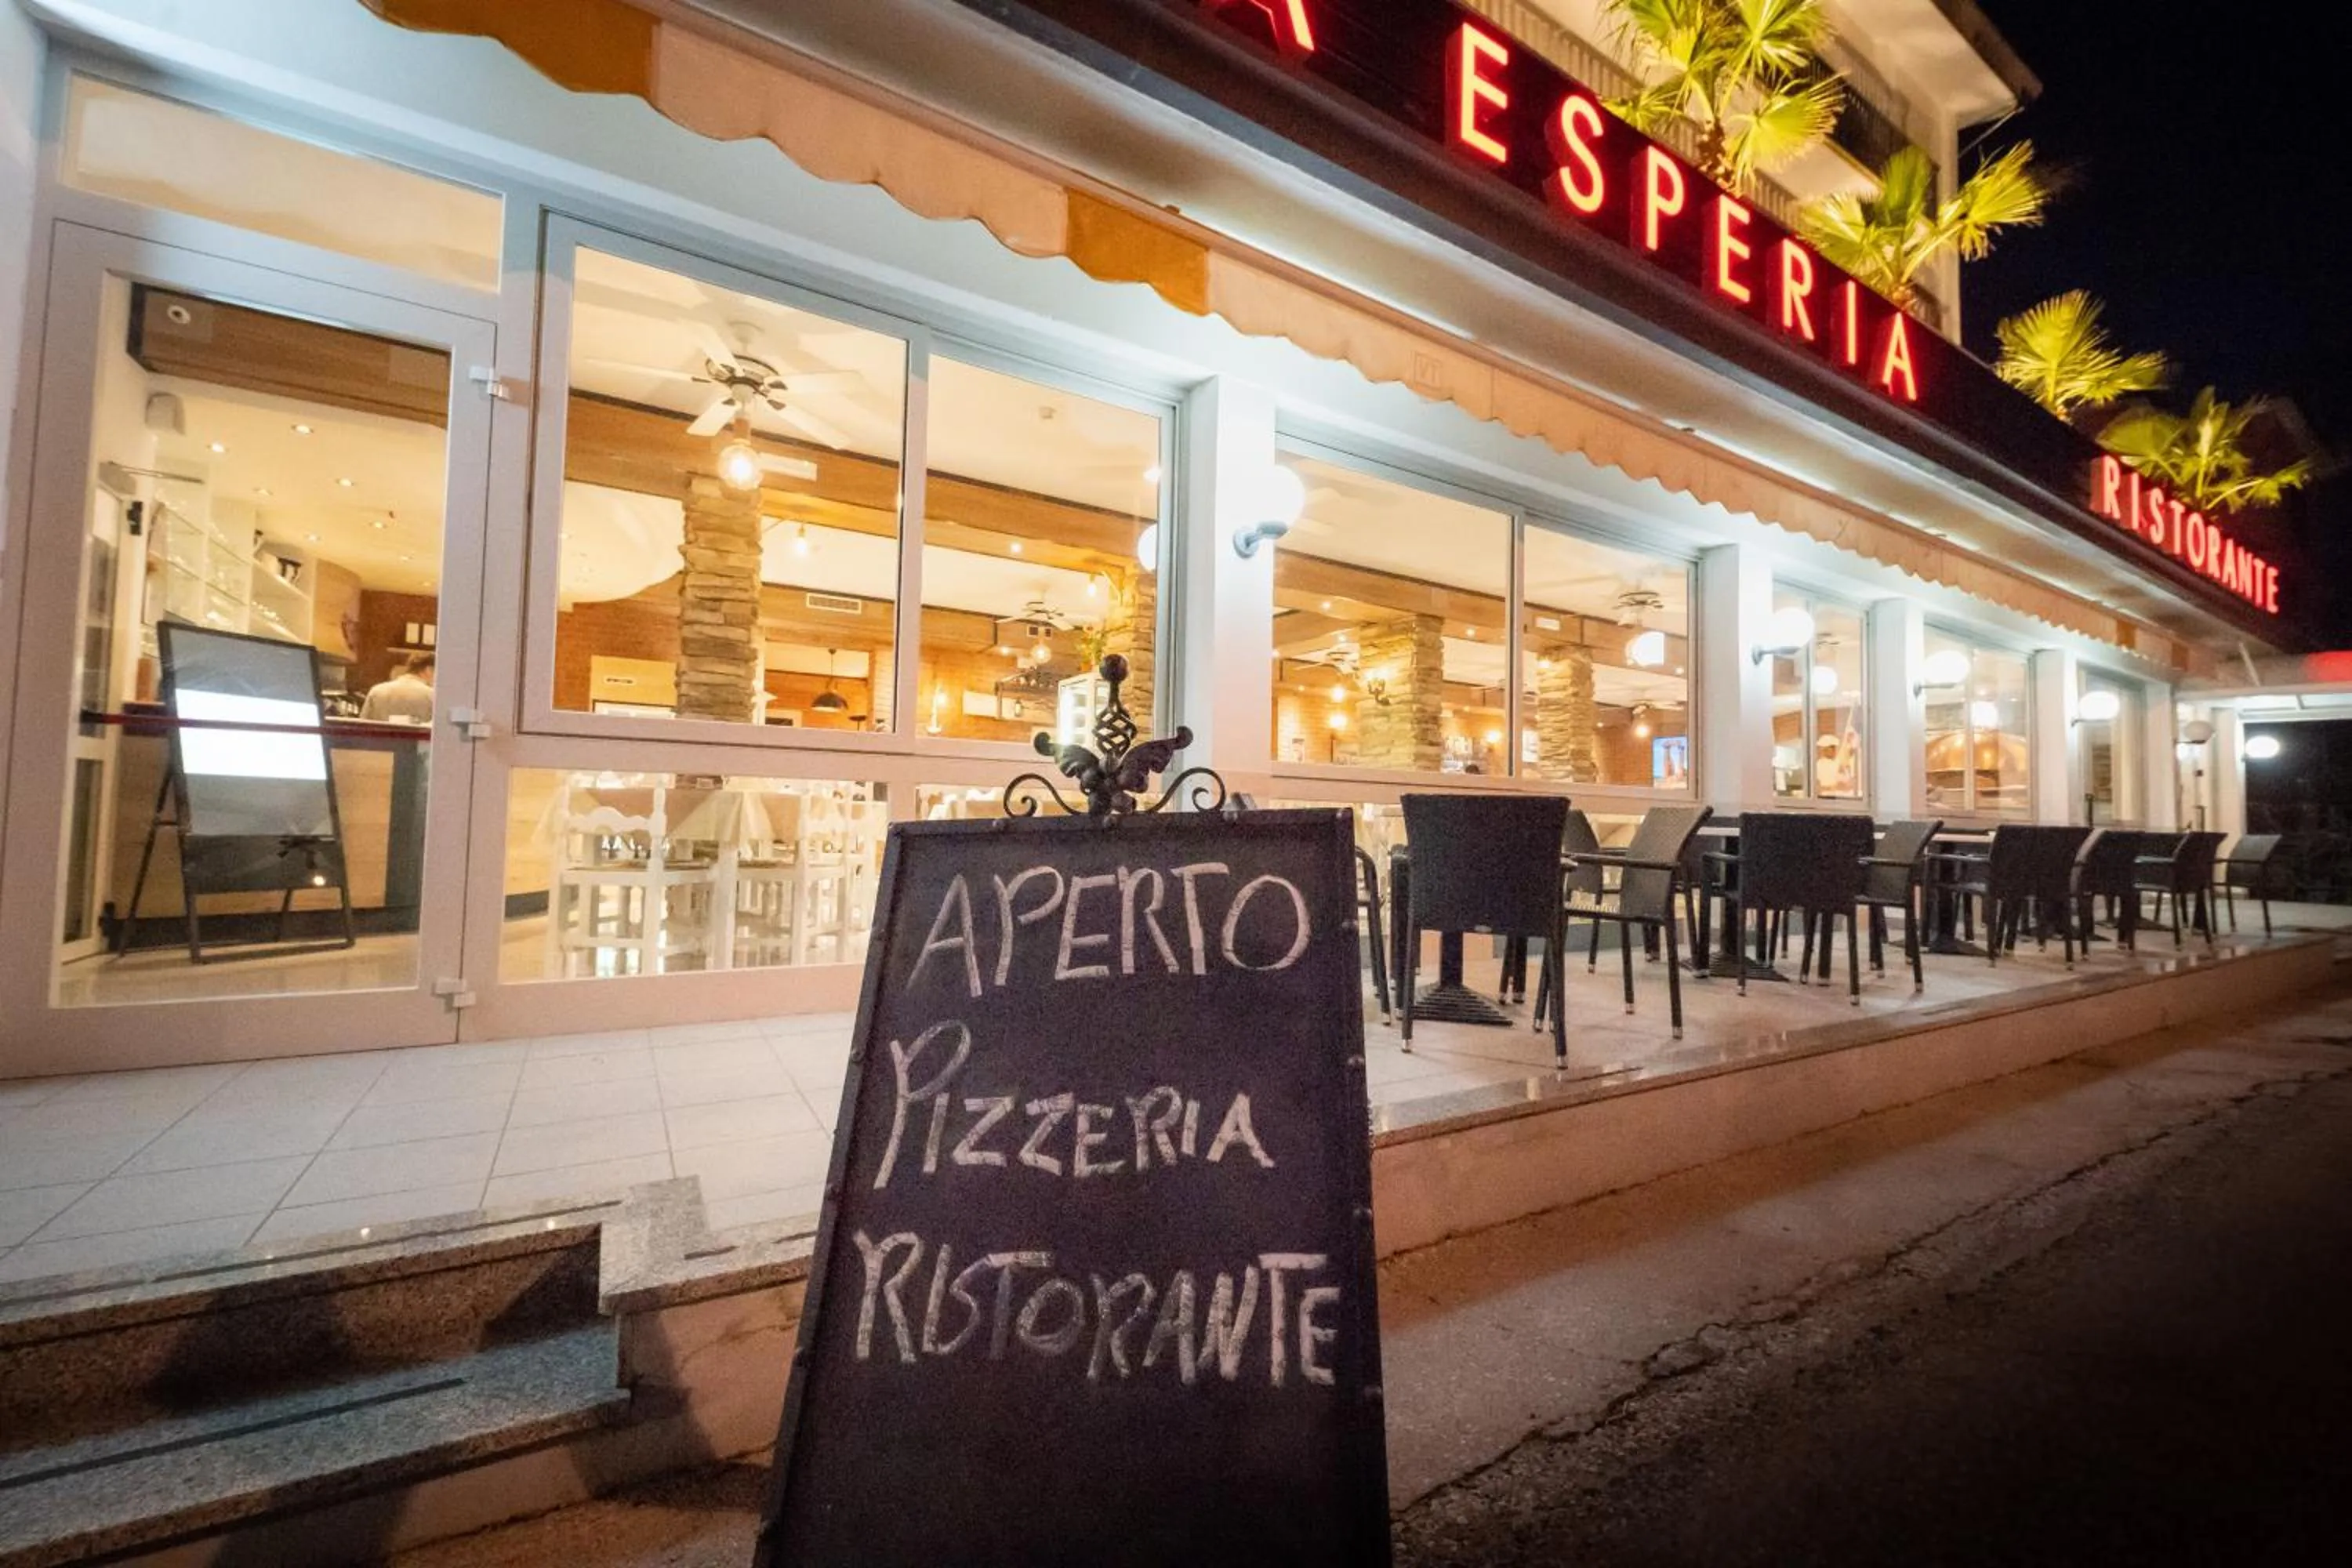 A ESPERIA
RISTORANTE
APERTO
PIZZERIA
RISTORANTE